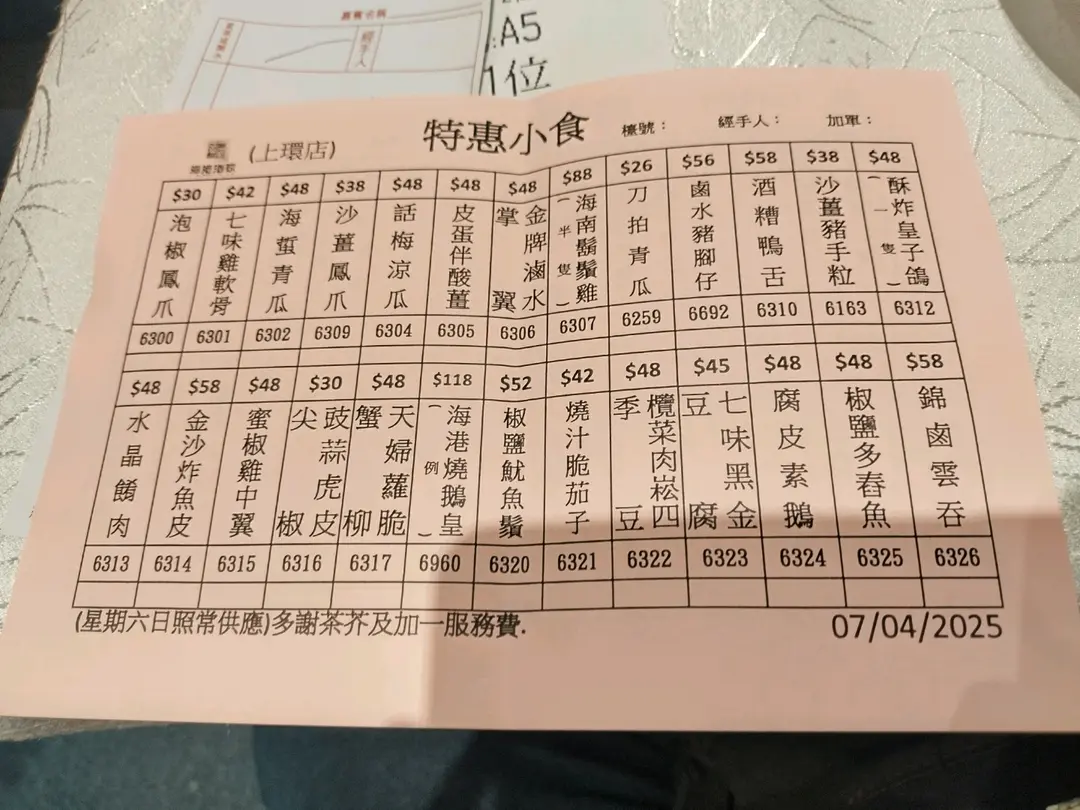 A5
1位
經手人
特惠小食
(上環店)
檯號：
經手人：
加單：
$30 $42 $48 $38 $48 $48 $48 $88 $26 $56 $58 $38 $48
泡椒鳳爪
七味雞軟骨
海蜇青瓜
沙薑鳳爪
話梅涼瓜
皮蛋伴酸薑
金牌滷水掌翼
海南鬍鬚雞(半隻)
刀拍青瓜
鹵水豬腳仔
酒糟鴨舌
沙薑豬手粒
酥炸皇子鴿(一隻)
6300 6301 6302 6309 6304 6305 6306 6307 6259 6692 6310 6163 6312
$48 $58 $48 $30 $48 $118 $52 $42 $48 $45 $48 $48 $58
水晶餚肉
金沙炸魚皮
蜜椒雞中翼
豉蒜虎皮尖椒
天婦蘿脆蟹柳
海港燒鵝皇(例)
椒鹽魷魚鬚
燒汁脆茄子
欖菜肉崧四季豆
七味黑金豆腐
腐皮素鵝
椒鹽多春魚
錦鹵雲吞
6313 6314 6315 6316 6317 6960 6320 6321 6322 6323 6324 6325 6326
(星期六日照常供應)多謝茶芥及加一服務費.
07/04/2025